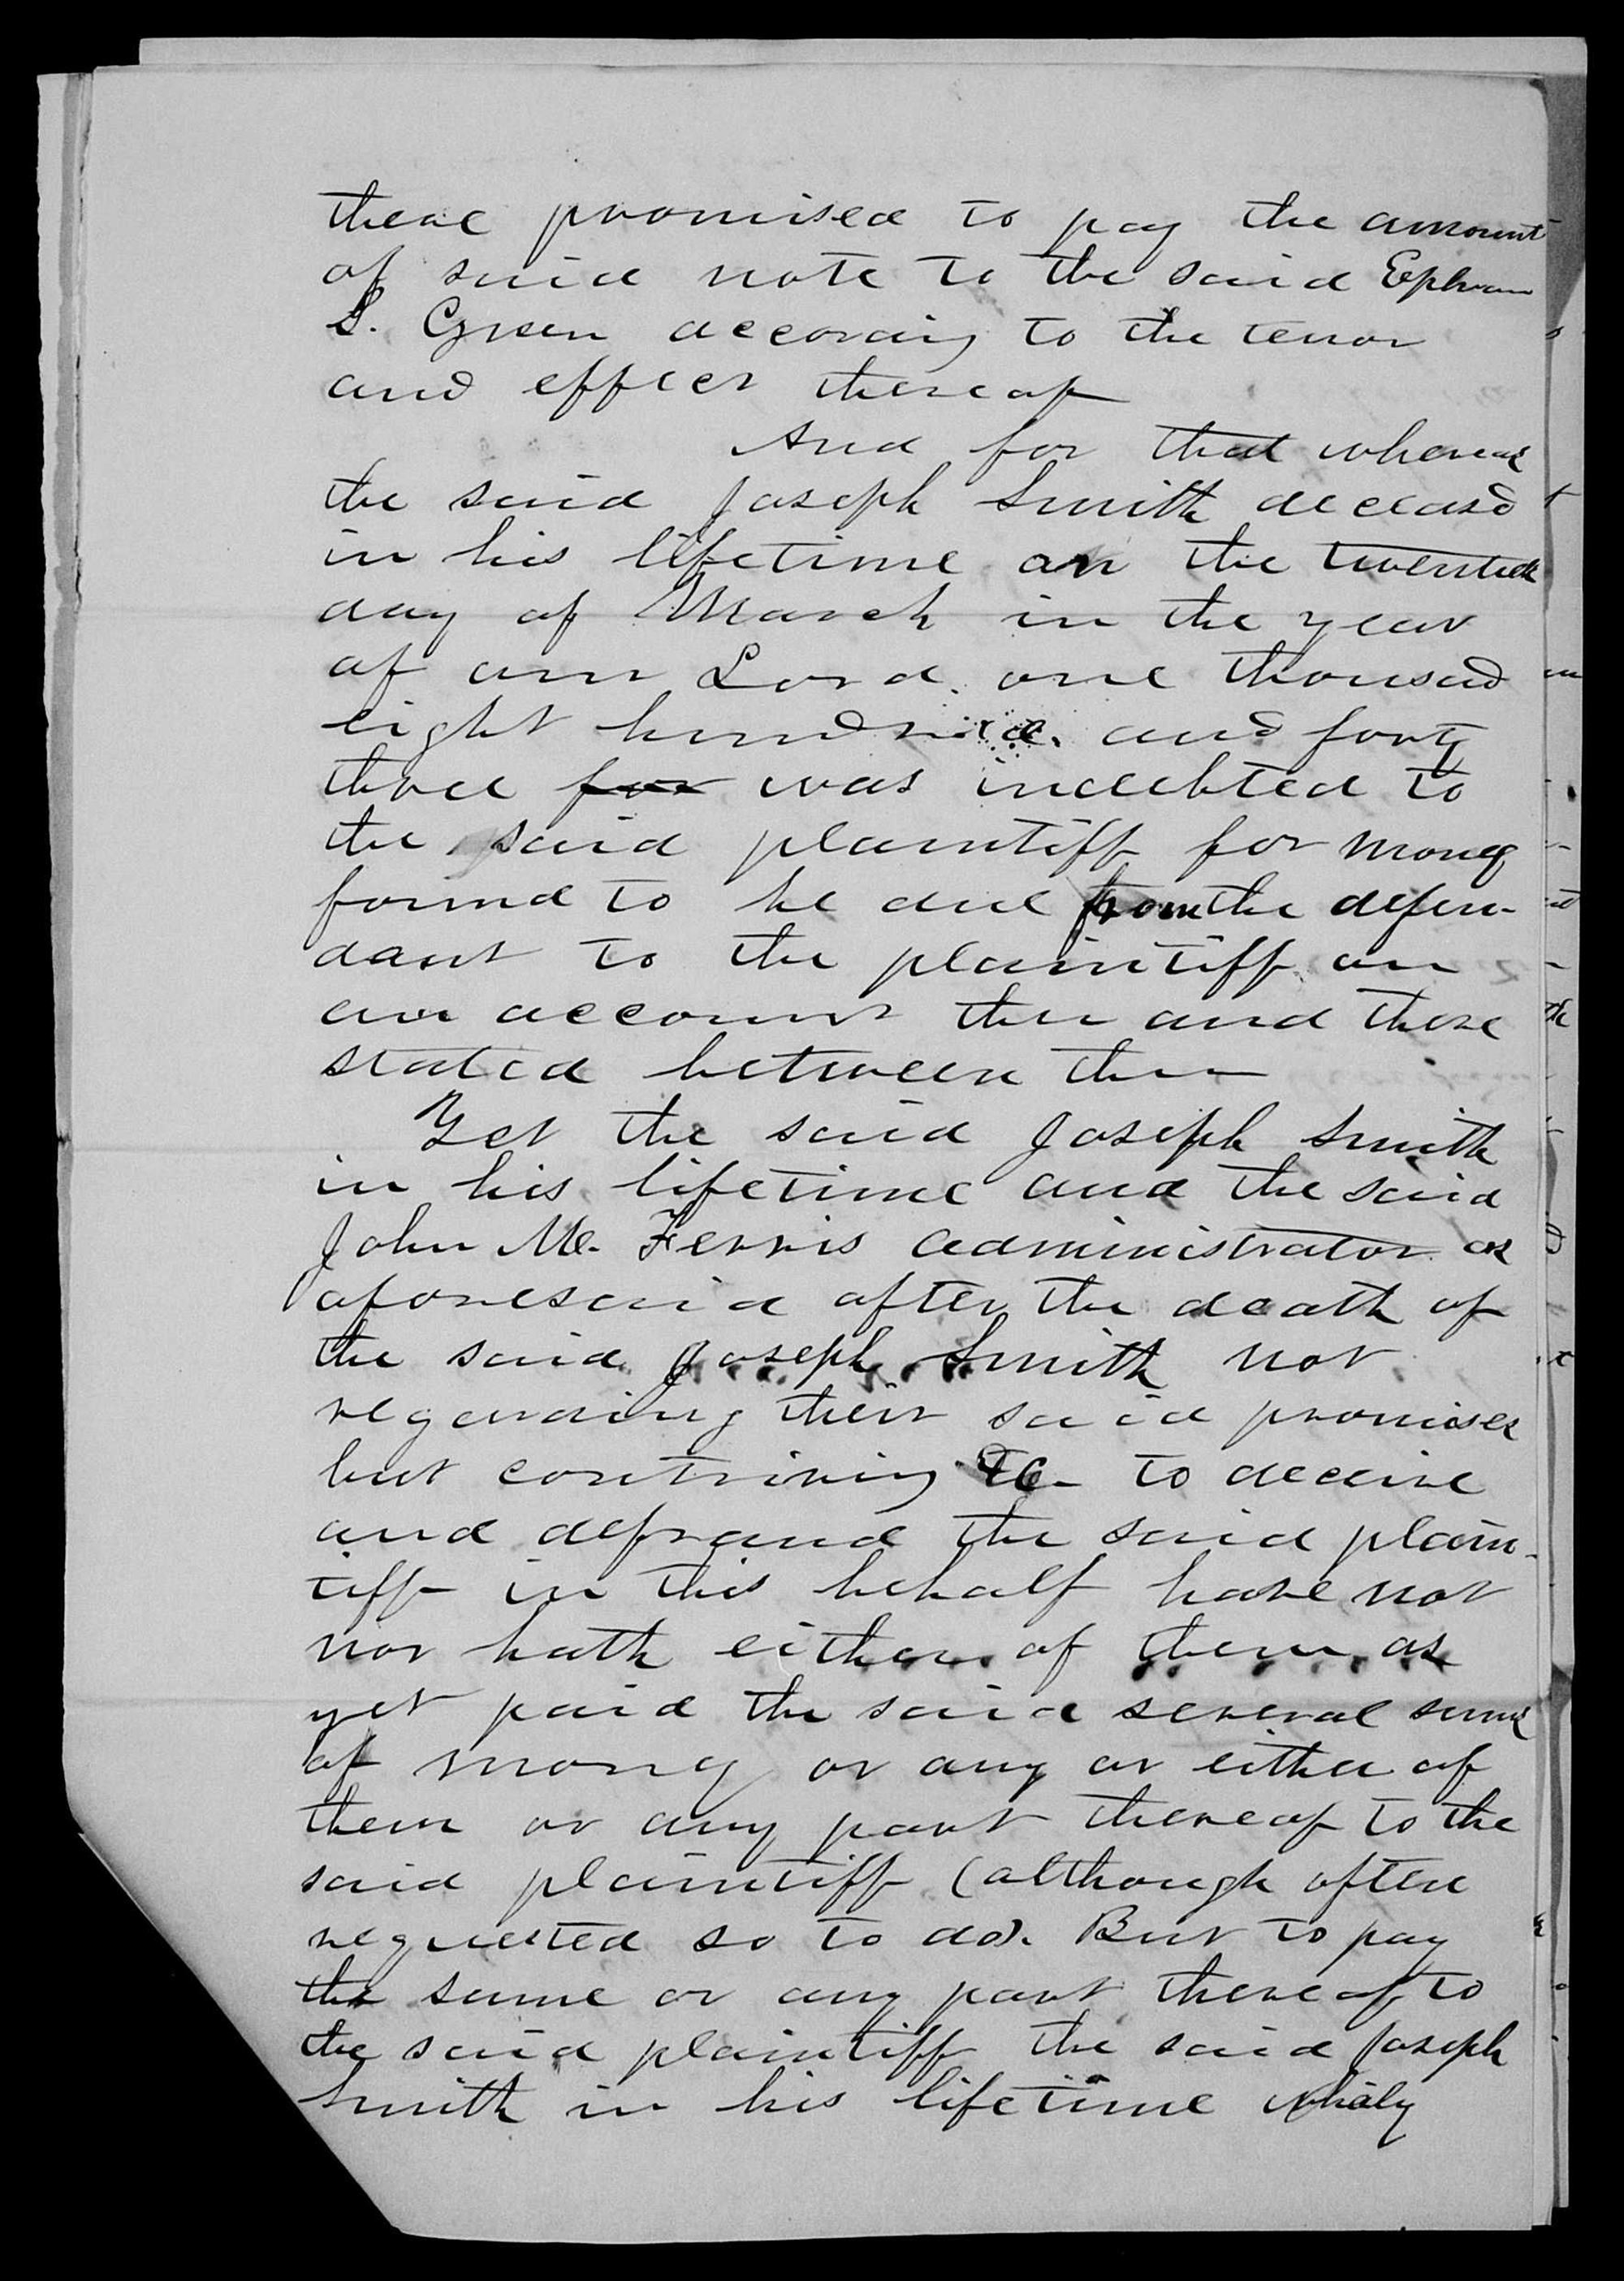 there promised to pay the amount
of said note to the said Ephram
S. Green according to the tenor
and effect thereof
And for that whereas
the said Joseph Smith deceasd
in his lifetime on the twentieth
day of March in the year
of our Lord one thousand
eight hundred and forty
three for was indebted to
the said plaintiff for money
found to be due from the defen-
dant to the plaintiff on
an account then and there
stated between them
Yet the said Joseph Smith
in his lifetime and the said
John M. Ferris administrator as
aforesaid after the death of
the said Joseph Smith not
regarding their said promises
but contriving &c to deceive
and defraud the said plain-
tiff in this behalf have not
nor hath either of them as
yet paid the said several sums
of money or any or either of
them or any part thereof to the
said plaintiff (although often
requested so to do). But to pay
the same or any part thereof to
the said plaintiff the said Joseph
Smith in his lifetime wholy